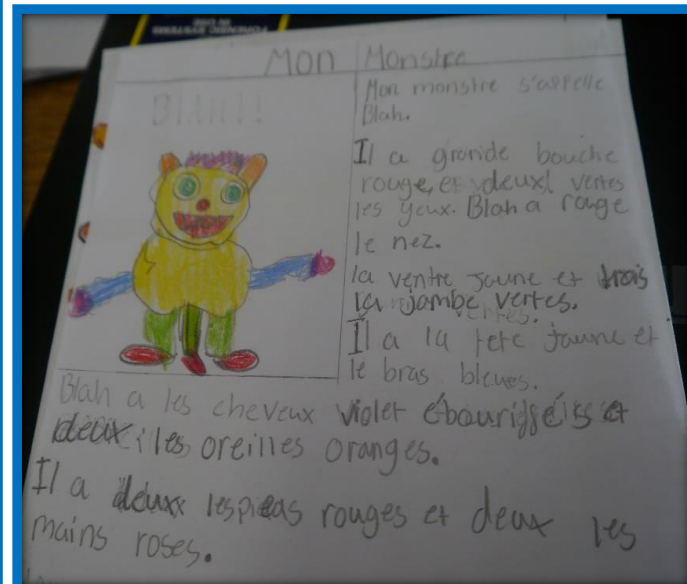 FORENSIC SYSTEMS
IN USE
Mon Monstre
BLAH!!
Mon monstre s'appelle
Blah.
Il a grande bouche
rouge, et deux vertes
les yeux. Blah a rouge
le nez.
la ventre jaune et trois
la jambe vertes.
Il a la tete jaune et
le bras bleues.
Blah a les cheveux violet ébouriffeés et
deux les oreilles oranges.
Il a deux les pieds rouges et deux les
mains roses.